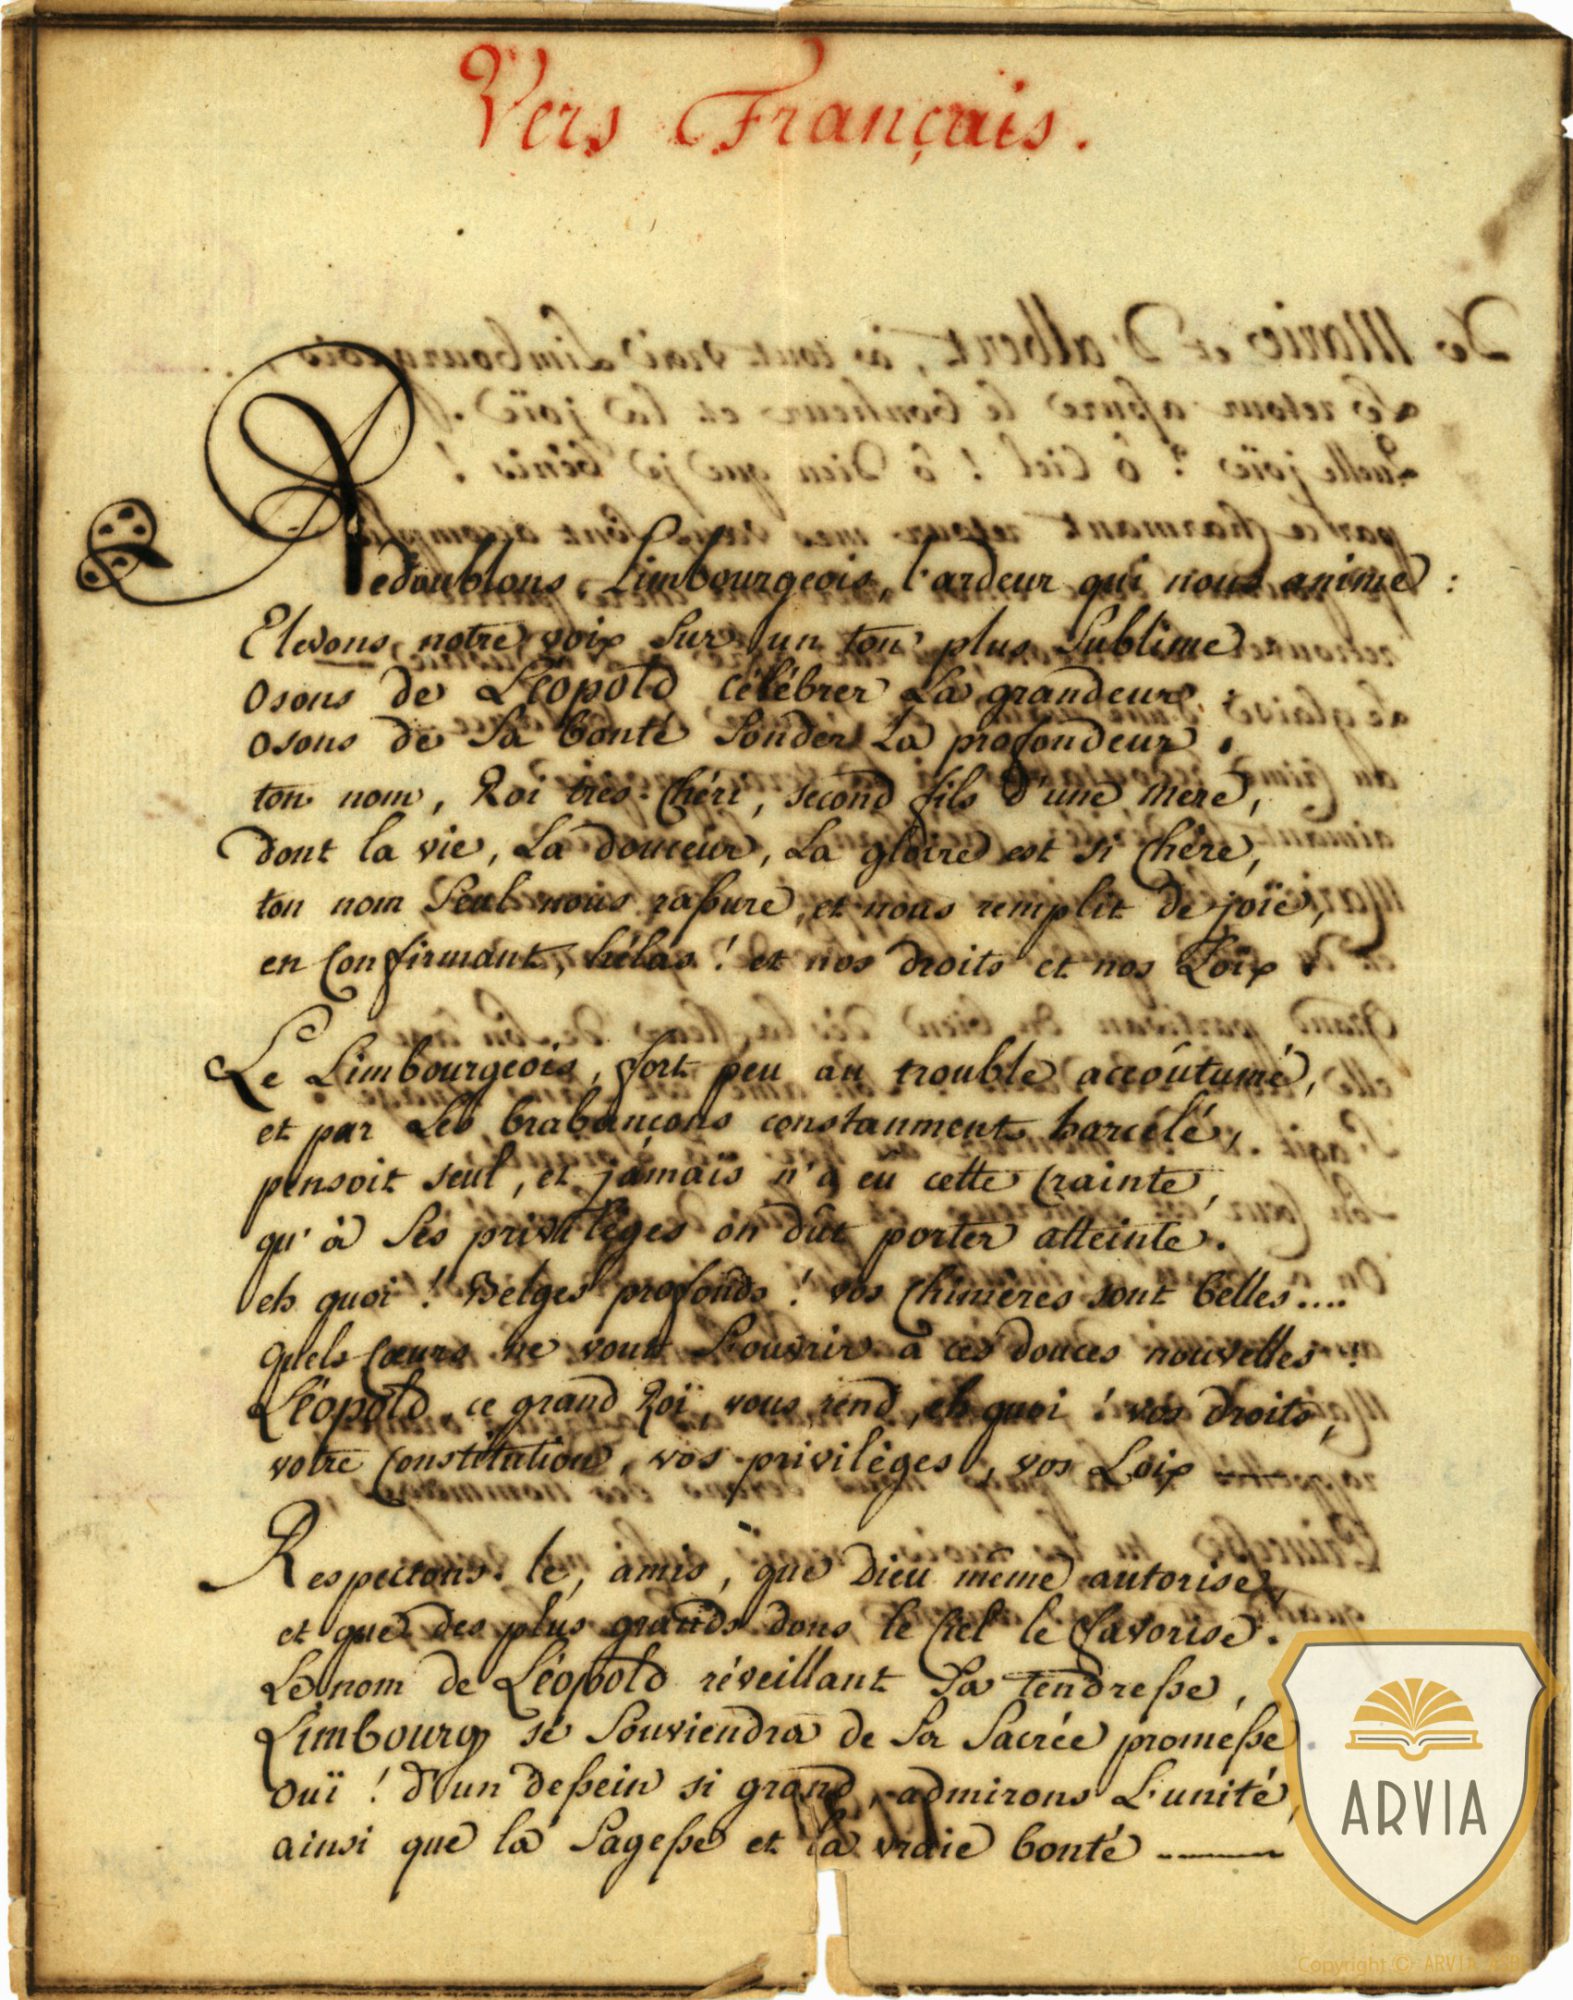 Vers Français.
Redoublons, Limbourgeois, l'ardeur qui nous anime :
Elevons notre voix sur un ton plus sublime
osons de Léopold célébrer La grandeur ;
osons de sa bonté sonder La profondeur.
ton nom, Roi tres-Chéri, second fils d'une mere,
dont la vie, La douceur, La gloire est si Chére,
ton nom seul nous raſsure, et nous remplit de joïe,
en Confirmant, hélas ! et nos droits et nos Loix.
Le Limbourgeois, fort peu au trouble accoutumé,
et par Les brabançons constanment harcelé,
pensoit seul, et jamais n'a eu cette Crainte,
qu'à ses privilèges on dût porter atteinte.
eh quoi ! Belges profonds ! vos Chimères sont belles....
quels Cœurs ne vont s'ouvrir à ces douces nouvelles !
Léopold, ce grand Roï, vous rend, eh quoi ! vos droits,
votre Constitution, vos privilèges, vos Loix
Respectons le, amis, que Dieu même autorise,
et que des plus grands dons le Ciel le favorise.
Le nom de Léopold réveillant sa tendreſse,
Limbourg se souviendra de sa sacrée promeſse
ouï ! d'un deſsein si grand, admirons L'unité,
ainsi que la sageſse et la vraie bonté
ARVIA
Copyright © ARVIA